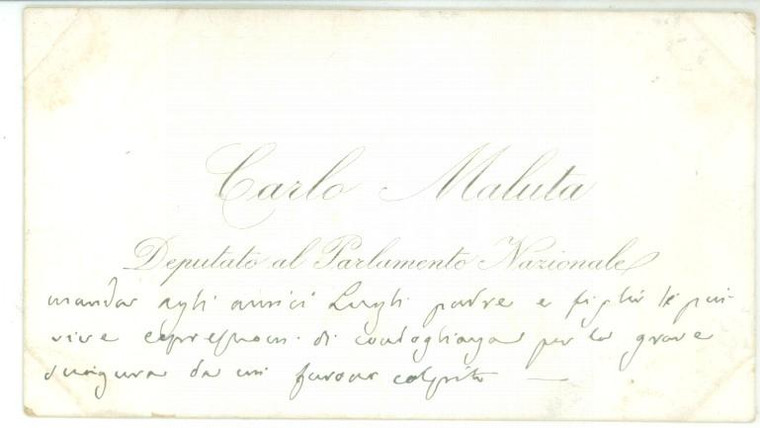 Carlo Maluta
Deputato al Parlamento Nazionale
manda agli amici Lugli padre e figlio le più
vive espressioni di condoglianza per la grave
sciagura da cui furono colpiti —